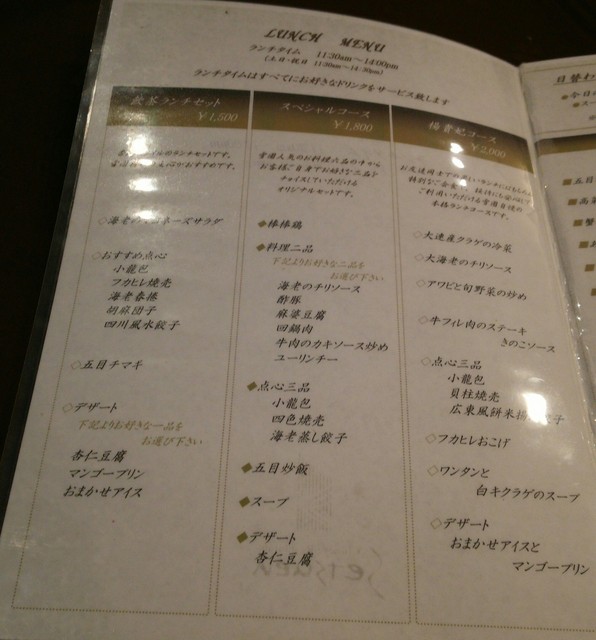 LUNCH MENU
ランチタイム 11:30am～14:00pm
(土日・祝日 11:30am～14:30pm)
ランチタイムはすべてにお好きなドリンクをサービス致します
飲茶ランチセット
¥1,500
のランチセットです。
おすすめです。
◇海老のマヨネーズサラダ
◇おすすめ点心
小龍包
フカヒレ焼売
海老春捲
胡麻団子
四川風水餃子
◇五目チマキ
◇デザート
下記よりお好きな一品を
お選び下さい
杏仁豆腐
マンゴープリン
おまかせアイス
スペシャルコース
¥1,800
当店人気のお料理六品の中から
お客様ご自身でお好きな二品を
チョイスしていただける
オリジナルセットです。
◆棒棒鶏
◆料理二品
下記よりお好きな二品を
お選び下さい
海老のチリソース
酢豚
麻婆豆腐
回鍋肉
牛肉のカキソース炒め
ユーリンチー
◆点心三品
小龍包
四色焼売
海老蒸し餃子
◆五目炒飯
◆スープ
◆デザート
杏仁豆腐
楊貴妃コース
¥2,800
ご利用いただける当店自慢の
本格ランチコースです。
◇大連産クラゲの冷菜
◇大海老のチリソース
◇アワビと旬野菜の炒め
◇牛フィレ肉のステーキ
きのこソース
◇点心三品
小龍包
貝柱焼売
広東風餅米揚げ餃子
◇フカヒレおこげ
◇ワンタンと
白キクラゲのスープ
◇デザート
おまかせアイスと
マンゴープリン
日替わ
今日の
スー
五目